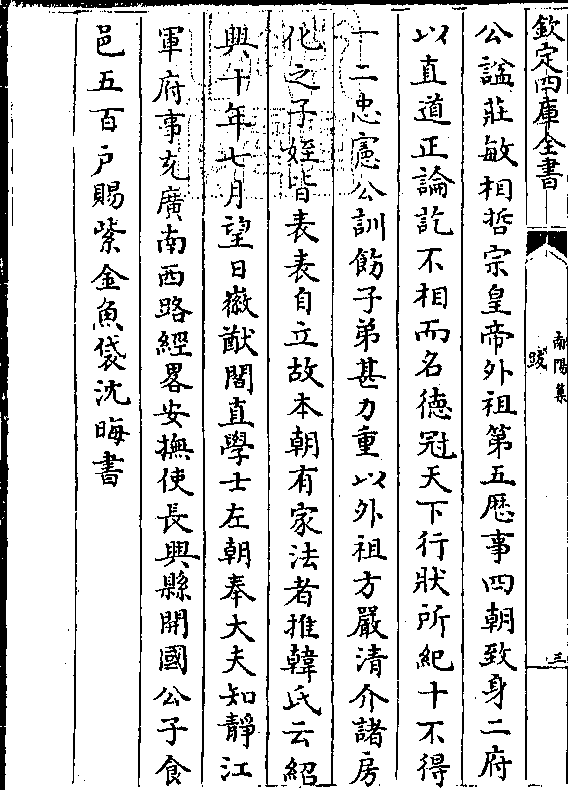 欽定四庫全書
南陽集
跋
三
公諡莊敏相哲宗皇帝外祖第五厯事四朝致身二府
以直道正論訖不相而名徳冠天下行狀所紀十不得
一二忠憲公訓飭子弟甚力重以外祖方嚴清介諸房
化之子姪皆表表自立故本朝有家法者推韓氏云紹
興十年七月望日徽猷閣直學士左朝奉大夫知靜江
軍府事充廣南西路經畧安撫使長興縣開國公子食
邑五百户賜紫金魚袋沈晦書